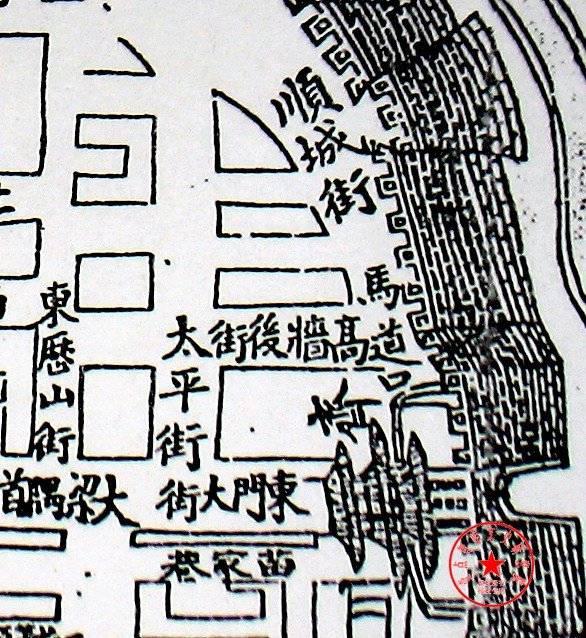 順城街
馬道口
高牆後街
太平街
東歷山街
東門大街
大梁隅首
苗家巷